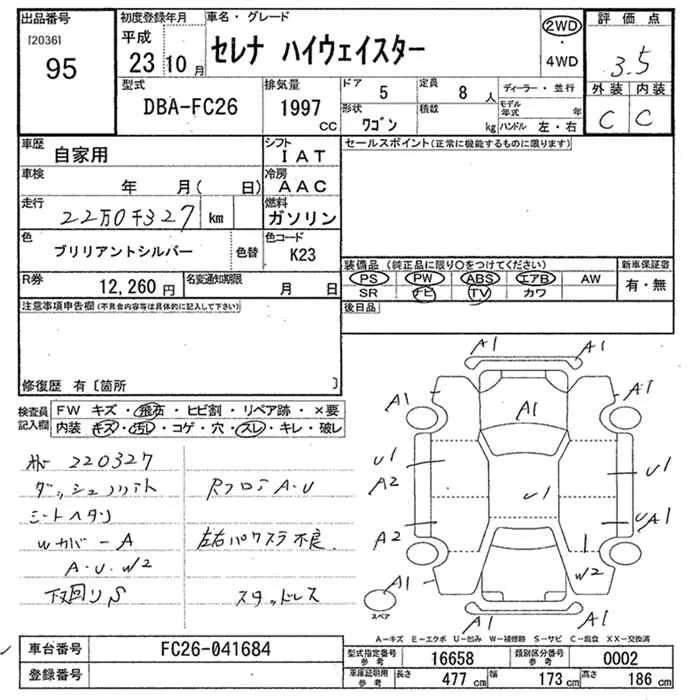 出品番号
[2036]
95
初度登録年月
平成
23 10月
車名・グレード
セレナ ハイウェイスター
2WD
・
4WD
評価点
3.5
外装 内装
C C
型式
DBA-FC26
排気量
1997
CC
ドア 5
定員 8人
形状 ワゴン
積載 kg
ディーラー・並行
モデル年式 年
ハンドル 左・右
車歴
自家用
シフト
IAT
車検
年 月( 日)
冷房
AAC
走行
22万0千327 km
燃料
ガソリン
色
ブリリアントシルバー
色替
色コード
K23
R券
12,260円
名変通知期限
月 日
セールスポイント(正常に機能するものに限ります)
装備品(純正品に限り○をつけてください)
PS PW ABS エアB AW
SR ナビ TV カワ
新車保証書
有・無
後日品
注意事項申告欄(不具合内容等は具体的に記入して下さい)
修復歴 有〔箇所 〕
検査員記入欄
FW キズ・飛石・ヒビ割・リペア跡・×要
内装 キズ・汚レ・コゲ・穴・スレ・キレ・破レ
220327
シートヘタリ
Wカバー A
A・U・W2
下回りS
RフロアA・U
左右パワスラ不良
スタッドレス
A1
A1
A1
A1
U1
A2
U1
U1
UA1
A2
W2
A1
A1
A1
スペア
A-キズ E-エクボ U-凹み W-補修跡 S-サビ C-腐食 XX-交換済
車台番号
FC26-041684
登録番号
型式指定番号
参考
16658
類別区分番号
参考
0002
車庫証明用
参考
長さ 477cm
幅 173cm
高さ 186cm